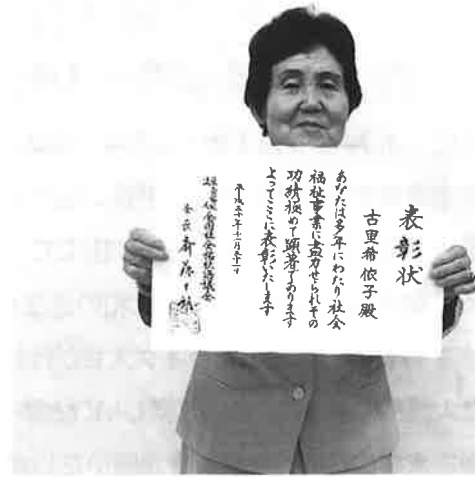 表彰状
古里希 依子殿
あなたは多年にわたり社会
福祉事業に盡力せられその
功績極めて顕著であります
よってここに表彰いたします
平成二十年十一月
社会福祉協議会
会長 斎藤